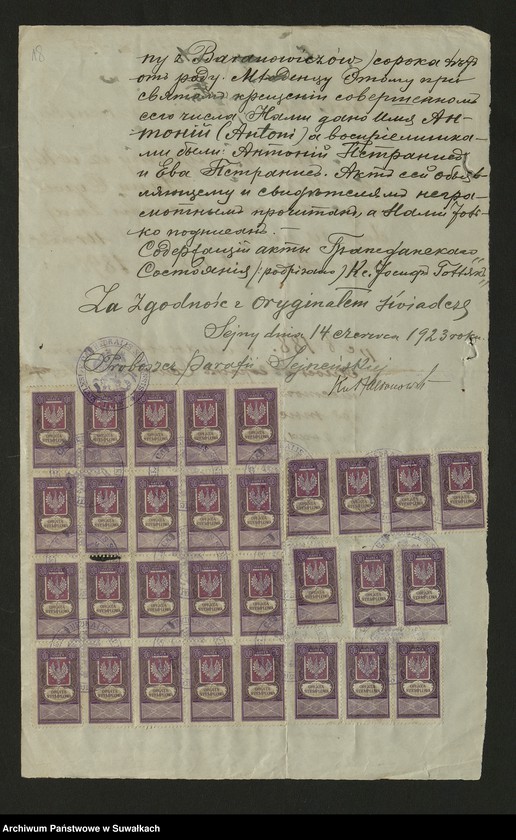 18
ну z Baranowiczów) сорока
отъ роду. Младенцу Этому при
святомъ крещеніи совершенномъ
сего числа Нами дано имя Ан-
тоній (Antoni) а воспріемника-
ми были: Антоній
и Ева Актъ сей объяв-
ляющему и свидѣтелямъ негра-
мотнымъ прочитанъ, а Нами толь-
ко подписанъ. —
Содержащій акты Гражданскаго
Состоянія /podpisano/ Кс. Іосифъ
Za zgodność z oryginałem świadczę
Sejny dnia 14 czerwca 1923 roku.
Proboszcz parafii Sejneńskiej
OPŁATA
STEMPLOWA
/ Archiwum Państwowe w Suwałkach